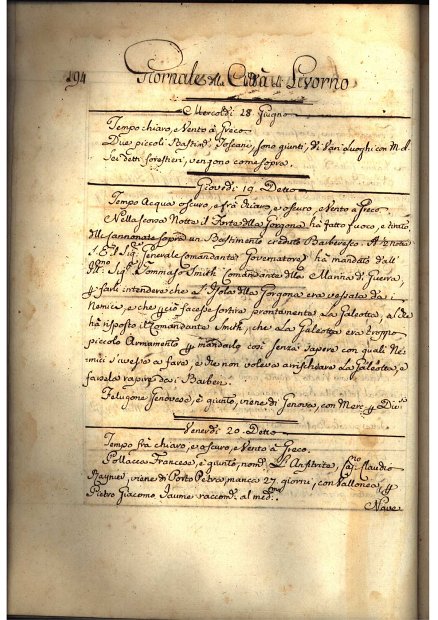 194 Giornale della Città di Livorno
Mercoldì 18 Giugno
Tempo chiaro, e Vento à Greco.
Due piccoli Bastim.ti Toscani, sono giunti, di Vari luoghi con M.
Sei detti forestieri, vengono come sopra.
Giovedì 19. Detto
Tempo Acqua oscuro, e frà chiaro, e oscuro, e Vento à Greco.
Nella scorsa Notte il Forte della Gorgona hà fatto fuoco, e tirato
delle cannonate sopra un Bastimento creduto Barbaresco. A
S. E. il Sig.r Generale Comandante Governatore hà mandato dall'
Ill.mo Sig.r Tommaso Smith Comandante della Marina di Guerra,
à farli intendere che l'Isola della Gorgona era vessata da i
Nemici, e che perciò facesse sortire prontamente la Galeotta, al che
hà risposto il Comandante Smith, che la Galeotta era troppo
piccolo Armamento per mandarlo così senza sapere con quali Ne=
mici s'avesse a fare, e che non voleva arrischiare la Galeotta, e
farsela rapire da i Barberi.
Felugone Genovese, è giunto, viene di Genova, con Merc. p
Venerdì 20. Detto
Tempo frà chiaro, e oscuro, e Vento à Greco.
Pollacca Francese, è giunto, nom.ta L'Anfitrite, Cap.no Claudio
Rayner, viene di Porto Petra, manca 27. giorni, con Vallonea, p
Pietro Giacomo Jaume raccom.o al med.mo
Nave